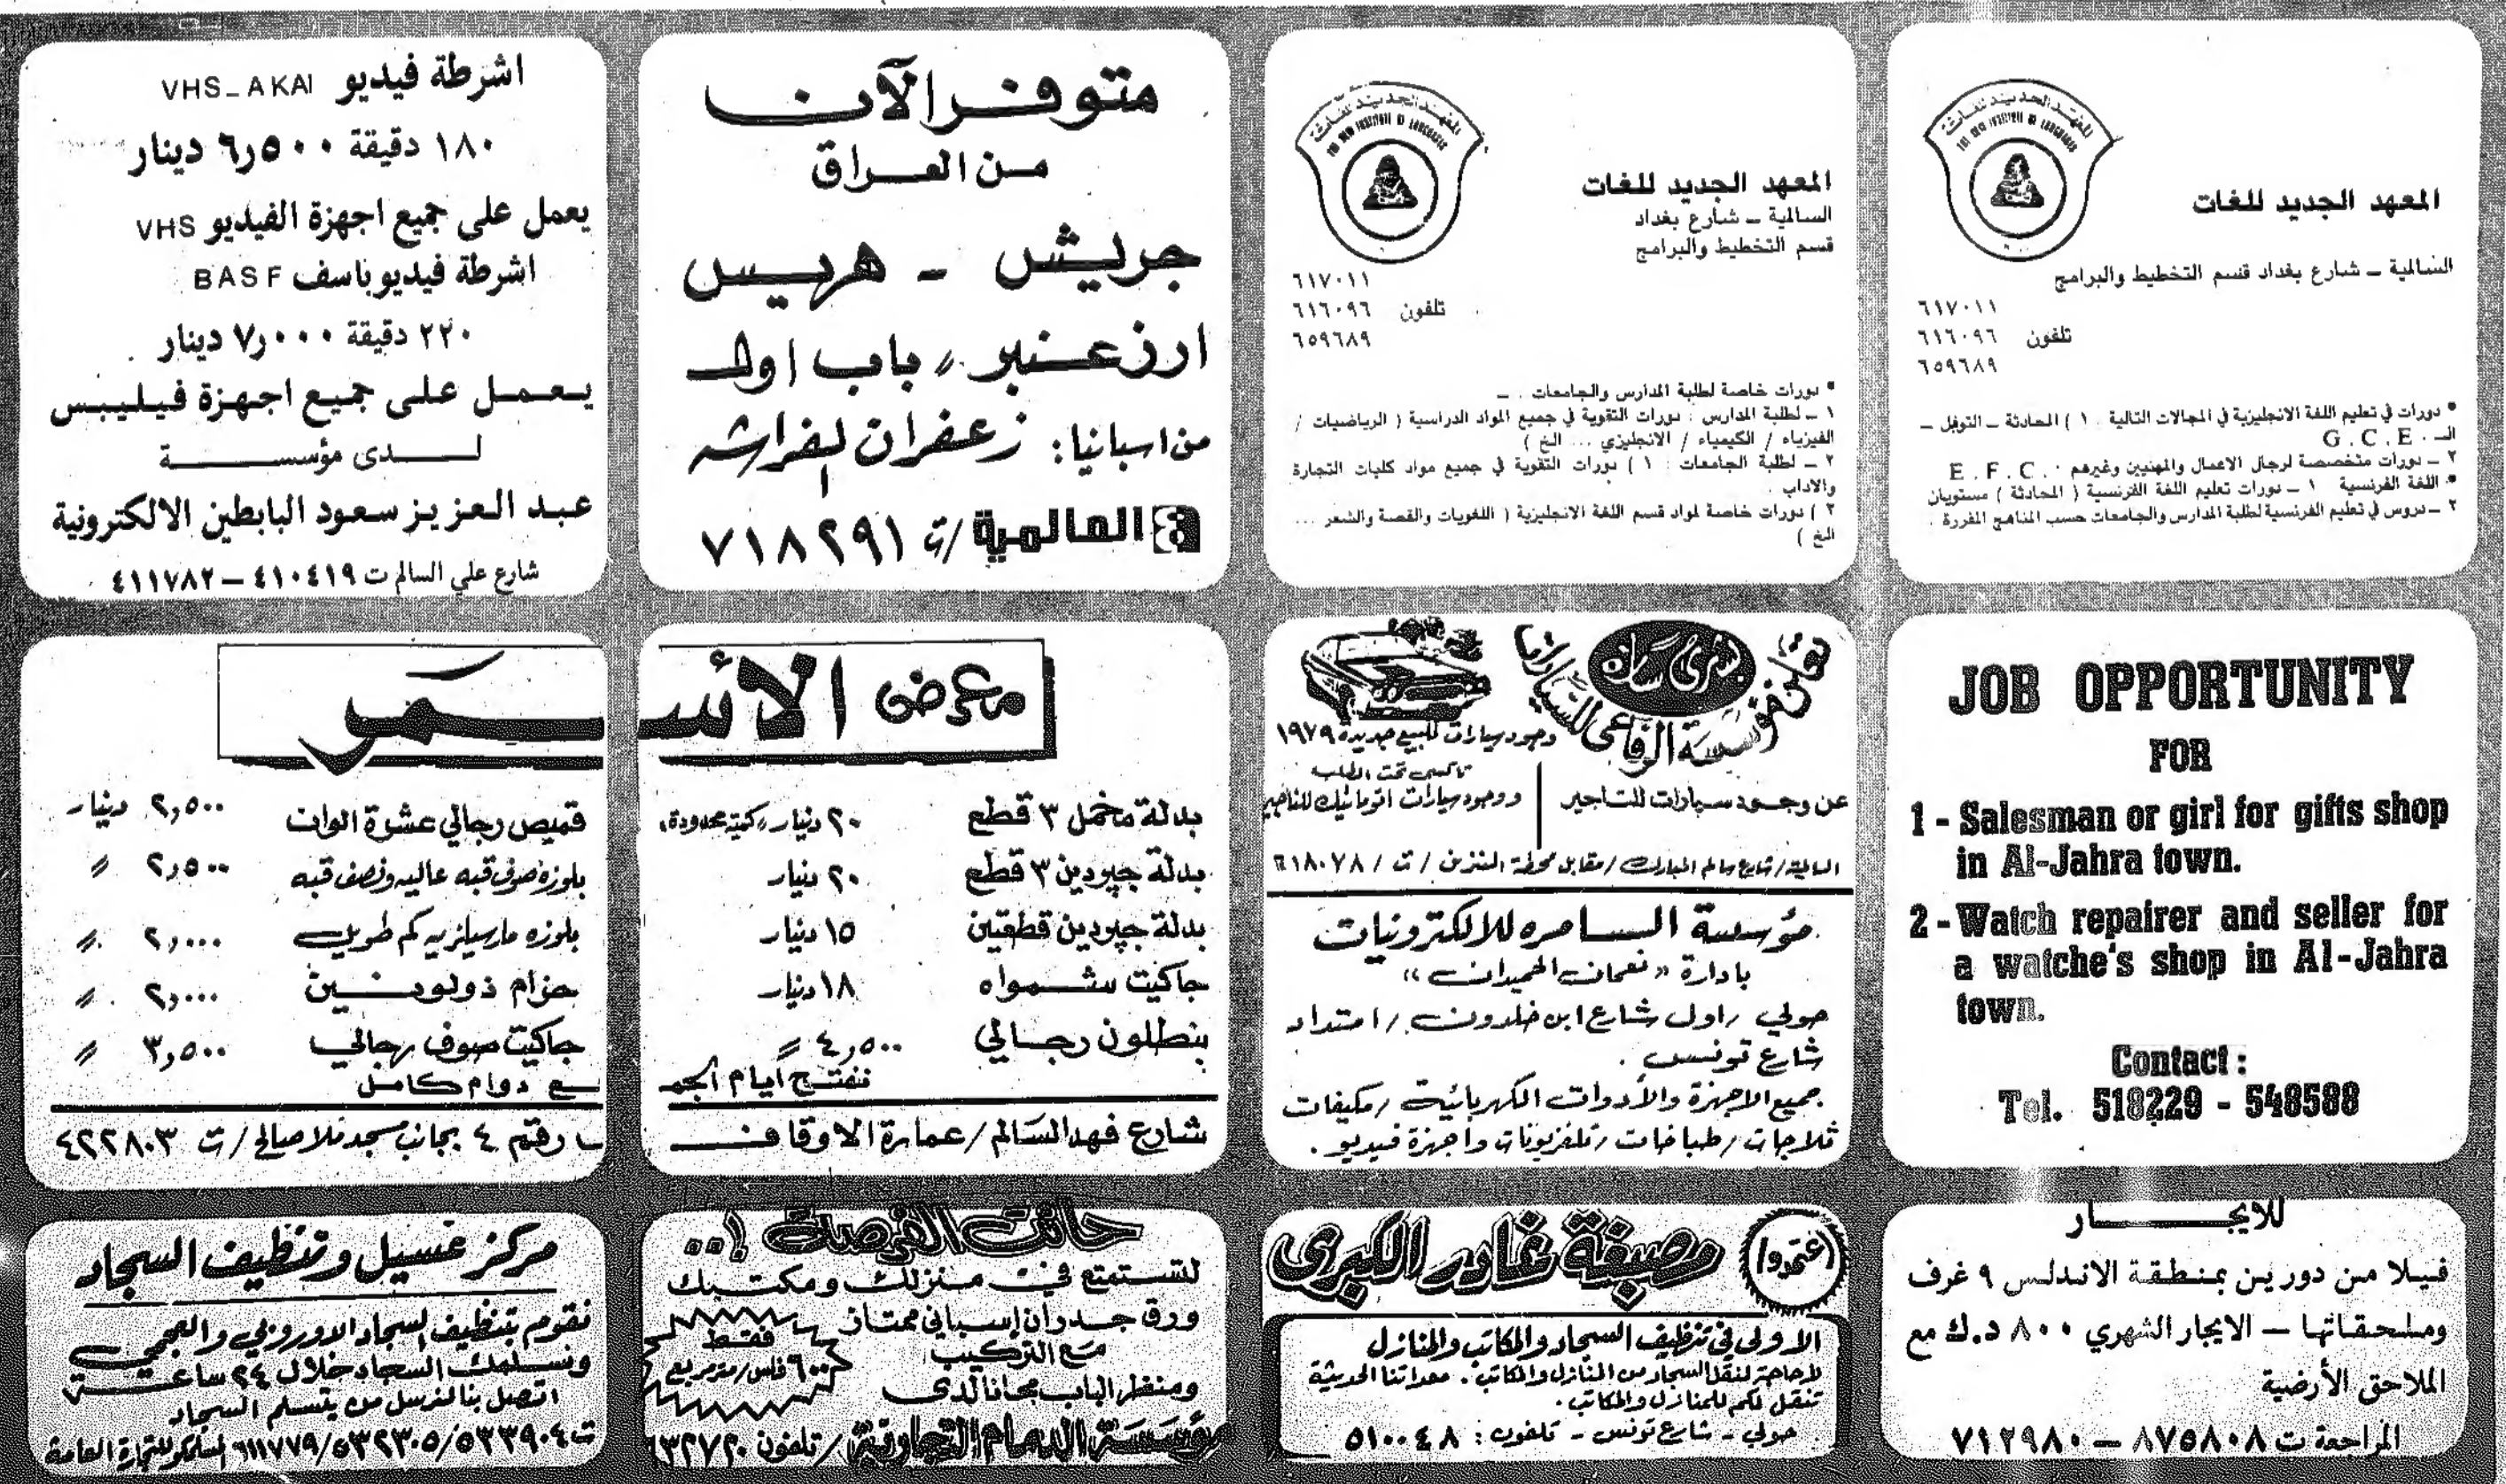 المعهد الجديد للغات
THE NEW INSTITUTE OF LANGUAGES
المعهد الجديد للغات
السالمية ــ شارع بغداد قسم التخطيط والبرامج
٦١٧٠١١
تلفون ٦١٦٠٩٦
٦٥٩٦٨٩
* دورات في تعليم اللغة الانجليزية في المجالات التالية . ١ ) المحادثة ــ التوفل ــ
الــ G . C . E .
٢ ــ دورات متخصصة لرجال الاعمال والمهنيين وغيرهم E . F . C .
* اللغة الفرنسية ١ ــ دورات تعليم اللغة الفرنسية ( المحادثة ) مستويان
٢ ــ دروس في تعليم الفرنسية لطلبة المدارس والجامعات حسب المناهج المقررة .
المعهد الجديد للغات
THE NEW INSTITUTE OF LANGUAGES
المعهد الجديد للغات
السالمية ــ شارع بغداد
قسم التخطيط والبرامج
٦١٧٠١١
تلفون ٦١٦٠٩٦
٦٥٩٦٨٩
* دورات خاصة لطلبة المدارس والجامعات . ــ
١ ــ لطلبة المدارس : دورات التقوية في جميع المواد الدراسية ( الرياضيات /
الفيزياء / الكيمياء / الانجليزي ... الخ )
٢ ــ لطلبة الجامعات : ١ ) دورات التقوية في جميع مواد كليات التجارة
والاداب .
٢ ) دورات خاصة لمواد قسم اللغة الانجليزية ( اللغويات والقصة والشعر ...
الخ )
متوفر الآن
من العراق
جريش - هريس
ارز عنبر // باب اول
من اسبانيا: زعفران الفراشه
العالمية / ت ٧١٨٢٩١
اشرطة فيديو VHS_AKAI
١٨٠ دقيقة ٦٫٥٠٠ دينار
يعمل على جميع اجهزة الفيديو VHS
اشرطة فيديو باسف BASF
٢٢٠ دقيقة ٧٫٠٠٠ دينار
يعمل على جميع اجهزة فيليبس
لدى مؤسسة
عبد العزيز سعود البابطين الالكترونية
شارع علي السالم ت ٤١٠٤١٩ – ٤١١٧٨٢
JOB OPPORTUNITY
FOR
1 - Salesman or girl for gifts shop
in Al-Jahra town.
2 - Watch repairer and seller for
a watche's shop in Al-Jahra
town.
Contact :
Tel. 518229 - 548588
بشرى سارة
تعلن مؤسسة الرفاعي للسيارات
وجود سيارات للبيع جديدة ١٩٧٩
تاكسي تحت الطلب
عن وجود سيارات للتأجير
ووجود سيارات اتوماتيك للتأجير
السالمية / شارع سالم المبارك / مقابل محطة البنزين / ت / ٦١٨٠٧٨
مؤسسة الساحره للالكترونيات
بادارة « نعمان الحميدان »
حولي / اول شارع ابن خلدون / امتداد
شارع تونس .
جميع الاجهزة والأدوات الكهربائية / مكيفات
ثلاجات / طباخات / تلفزيونات واجهزة فيديو .
معرض الأسمر
بدلة مخمل ٣ قطع ٢٠ دينار «كمية محدودة»
بدلة جبردين ٣ قطع ٢٠ دينار
بدلة جبردين قطعتين ١٥ دينار
جاكيت شمواه ١٨ دينار
بنطلون رجالي ٤٫٥٠٠ =
قميص رجالي عشرة الوان ٢٫٥٠٠ دينار
بلوزه صوف قبه عاليه ونصف قبه ٢٫٥٠٠ //
بلوزه مارسيلزيه كم طويل ٢٫٠٠٠ //
حزام ذو لونين ٢٫٠٠٠ //
جاكيت صوف رجالي ٣٫٥٠٠ //
نفتتح أيام الجمع دوام كامل
شارع فهد السالم / عمارة الاوقاف باب رقم ٤ بجانب مسجد ملا صالح / ت ٤٢٢٨٠٣
للايجار
فيلا من دورين بمنطقة الاندلس ٩ غرف
وملحقاتها – الايجار الشهري ٨٠٠ د.ك مع
الملاحق الأرضية
المراجعة ت ٨٧٥٨٠٨ – ٧١٢٩٨٠
اعتمدوا
مصبغة غادر الكبرى
الاولى في تنظيف السجاد والمكاتب والمنازل
لا حاجة لنقل السجاد من المنازل والمكاتب . معداتنا الحديثة
تنقل لكم للمنازل والمكاتب .
حولي - شارع تونس - تلفون : ٥١٠٠٤٨
حانت الفرصة !..
لتستمتع في منزلك ومكتبك
ورق جدران إسباني ممتاز
مع التركيب
فقط
٦٠٠ فلس / متر مربع
ومنظر الباب مجانا لدى
مؤسسة الدمام التجارية / تلفون ٦٣٢٧٢٠
مركز غسيل وتنظيف السجاد
نقوم بتنظيف السجاد الاوروبي والعجمي
ونسلمك السجاد خلال ٢٤ ساعة
اتصل بنا لنرسل من يتسلم السجاد
ت ٥٣٣٩٠٤/٥٣٢٣٠٥/٦١١٧٧٩ المسلكو للتجارة العامة